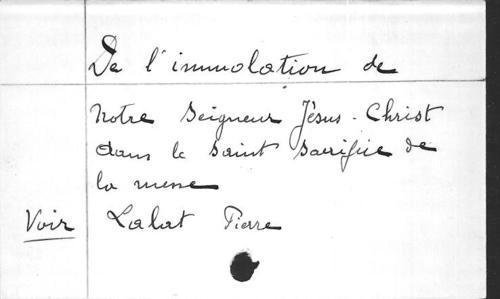 De l'immolation de
Notre Seigneur Jésus-Christ
dans le Saint Sacrifice de
la messe
Voir Labat Pierre